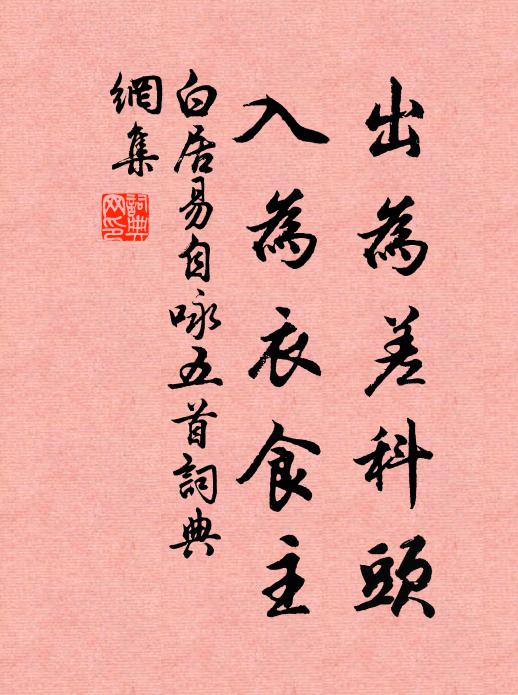 出為差科頭
入為衣食主
白居易自咏五首詞典
網集
詞典
网印